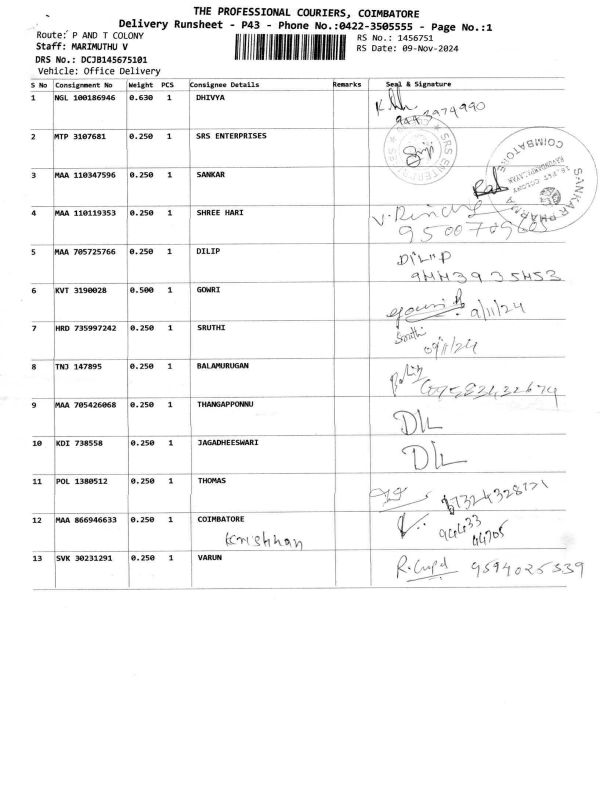 THE PROFESSIONAL COURIERS, COIMBATORE
Delivery Runsheet - P43 - Phone No.:0422-3505555 - Page No.:1
Route: P AND T COLONY
RS No.: 1456751
Staff: MARIMUTHU V
RS Date: 09-Nov-2024
DRS No.: DCJB145675101
Vehicle: Office Delivery
S No Consignment No Weight PCS Consignee Details Remarks Seal & Signature
1 NGL 100186946 0.630 1 DHIVYA
9443974990
2 MTP 3107681 0.250 1 SRS ENTERPRISES
SRS ENTERPRISES
COIMBATORE
3 MAA 110347596 0.250 1 SANKAR
SANKAR PHARMA
COIMBATORE
4 MAA 110119353 0.250 1 SHREE HARI
5 MAA 705725766 0.250 1 DILIP DILIP
6 KVT 3190028 0.500 1 GOWRI gowri 9/11/24
7 HRD 735997242 0.250 1 SRUTHI Sruthi
09/11/24
8 TNJ 147895 0.250 1 BALAMURUGAN
9 MAA 705426068 0.250 1 THANGAPPONNU D/L
10 KDI 738558 0.250 1 JAGADHEESWARI D/L
11 POL 1380512 0.250 1 THOMAS
12 MAA 866946633 0.250 1 COIMBATORE
Krishnan 94433
44705
13 SVK 30231291 0.250 1 VARUN 9594025539